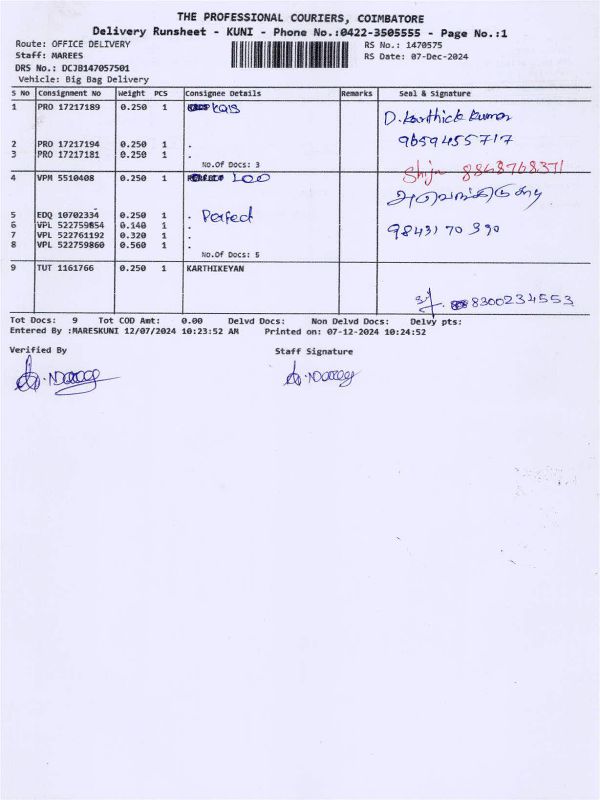 THE PROFESSIONAL COURIERS, COIMBATORE
Delivery Runsheet - KUNI - Phone No.:0422-3505555 - Page No.:1
Route: OFFICE DELIVERY
RS No.: 1470575
Staff: MAREES
RS Date: 07-Dec-2024
DRS No.: DCJB147057501
Vehicle: Big Bag Delivery
S No Consignment No Weight PCS Consignee Details Remarks Seal & Signature
1 PRO 17217189 0.250 1
D. Karthick Kumar
9659455717
2 PRO 17217194 0.250 1 .
3 PRO 17217181 0.250 1 .
No.Of Docs: 3
Shiju 8868768371
4 VPM 5510408 0.250 1 LOO
5 EDQ 10702334 0.250 1 . Perfect
6 VPL 522759854 0.140 1 .
98431 70 390
7 VPL 522761192 0.320 1 .
8 VPL 522759860 0.560 1 .
No.Of Docs: 5
9 TUT 1161766 0.250 1 KARTHIKEYAN
8300234553
Tot Docs: 9 Tot COD Amt: 0.00 Delvd Docs: Non Delvd Docs: Delvy pts:
Entered By :MARESKUNI 12/07/2024 10:23:52 AM Printed on: 07-12-2024 10:24:52
Verified By Staff Signature